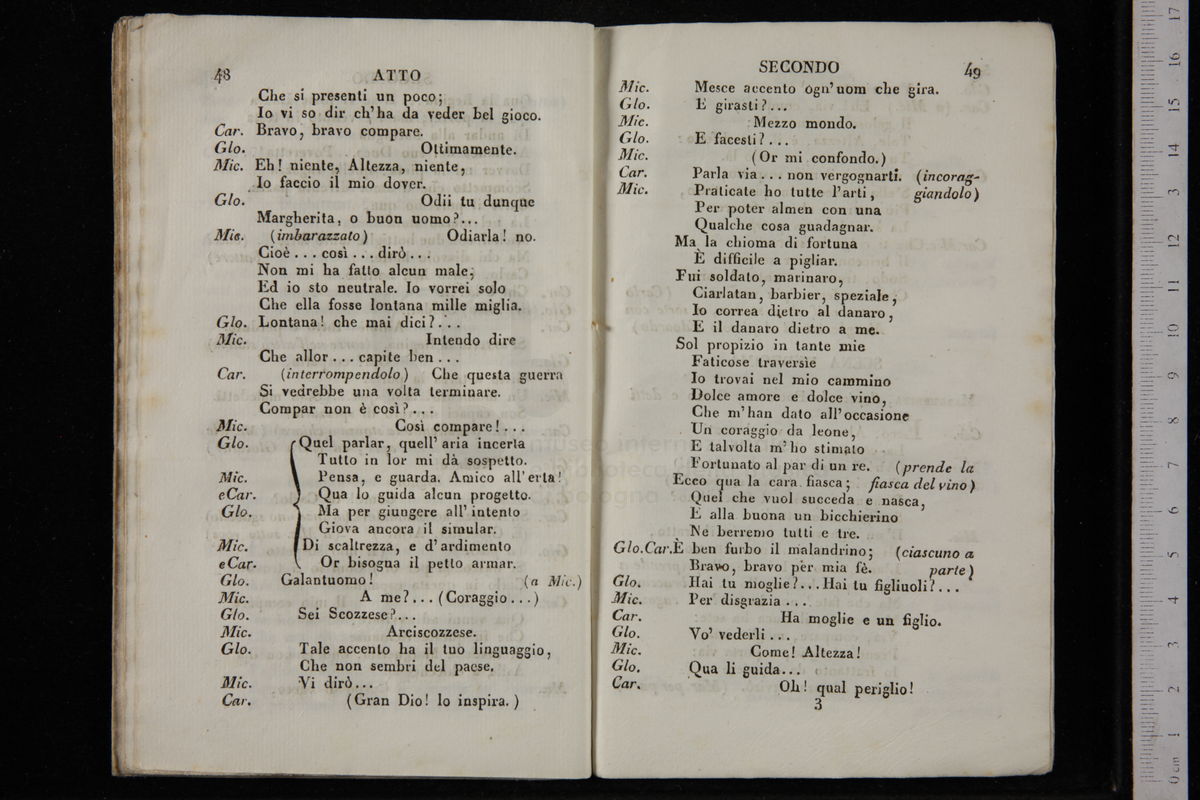 48 ATTO
Che si presenti un poco;
Io vi so dir ch'ha da veder bel gioco.
Car. Bravo, bravo compare.
Glo. Ottimamente.
Mic. Eh! niente, Altezza, niente,
Io faccio il mio dover.
Glo. Odii tu dunque
Margherita, o buon uomo?...
Mic. (imbarazzato) Odiarla! no.
Cioè... così... dirò...
Non mi ha fatto alcun male,
Ed io sto neutrale. Io vorrei solo
Che ella fosse lontana mille miglia.
Glo. Lontana! che mai dici?...
Mic. Intendo dire
Che allor... capite ben...
Car. (interrompendolo) Che questa guerra
Si vedrebbe una volta terminare.
Compar non è così?...
Mic. Così compare!...
Glo. Quel parlar, quell' aria incerta
Tutto in lor mi dà sospetto.
Mic. Pensa, e guarda. Amico all'erta!
e Car. Qua lo guida alcun progetto.
Glo. Ma per giungere all' intento
Giova ancora il simular.
Mic. Di scaltrezza, e d' ardimento
e Car. Or bisogna il petto armar.
Glo. Galantuomo! (a Mic.)
Mic. A me?... (Coraggio...)
Glo. Sei Scozzese?...
Mic. Arciscozzese.
Glo. Tale accento ha il tuo linguaggio,
Che non sembri del paese.
Mic. Vi dirò...
Car. (Gran Dio! lo inspira.)
SECONDO 49
Mic. Mesce accento ogn'uom che gira.
Glo. E girasti?...
Mic. Mezzo mondo.
Glo. E facesti?...
Mic. (Or mi confondo.)
Car. Parla via... non vergognarti. (incorag-
Mic. Praticate ho tutte l'arti, giandolo)
Per poter almen con una
Qualche cosa guadagnar.
Ma la chioma di fortuna
È difficile a pigliar.
Fui soldato, marinaro,
Ciarlatan, barbier, speziale,
Io correa dietro al danaro,
E il danaro dietro a me.
Sol propizio in tante mie
Faticose traversìe
Io trovai nel mio cammino
Dolce amore e dolce vino,
Che m'han dato all'occasione
Un coraggio da leone,
E talvolta m'ho stimato
Fortunato al par di un re. (prende la
Ecco qua la cara fiasca; fiasca del vino)
Quel che vuol succeda e nasca,
E alla buona un bicchierino
Ne berremo tutti e tre.
Glo. Car. È ben furbo il malandrino; (ciascuno a
Bravo, bravo per mia fè. parte)
Glo. Hai tu moglie?... Hai tu figliuoli?...
Mic. Per disgrazia...
Car. Ha moglie e un figlio.
Glo. Vo' vederli...
Mic. Come! Altezza!
Glo. Qua li guida...
Car. Oh! qual periglio!
3